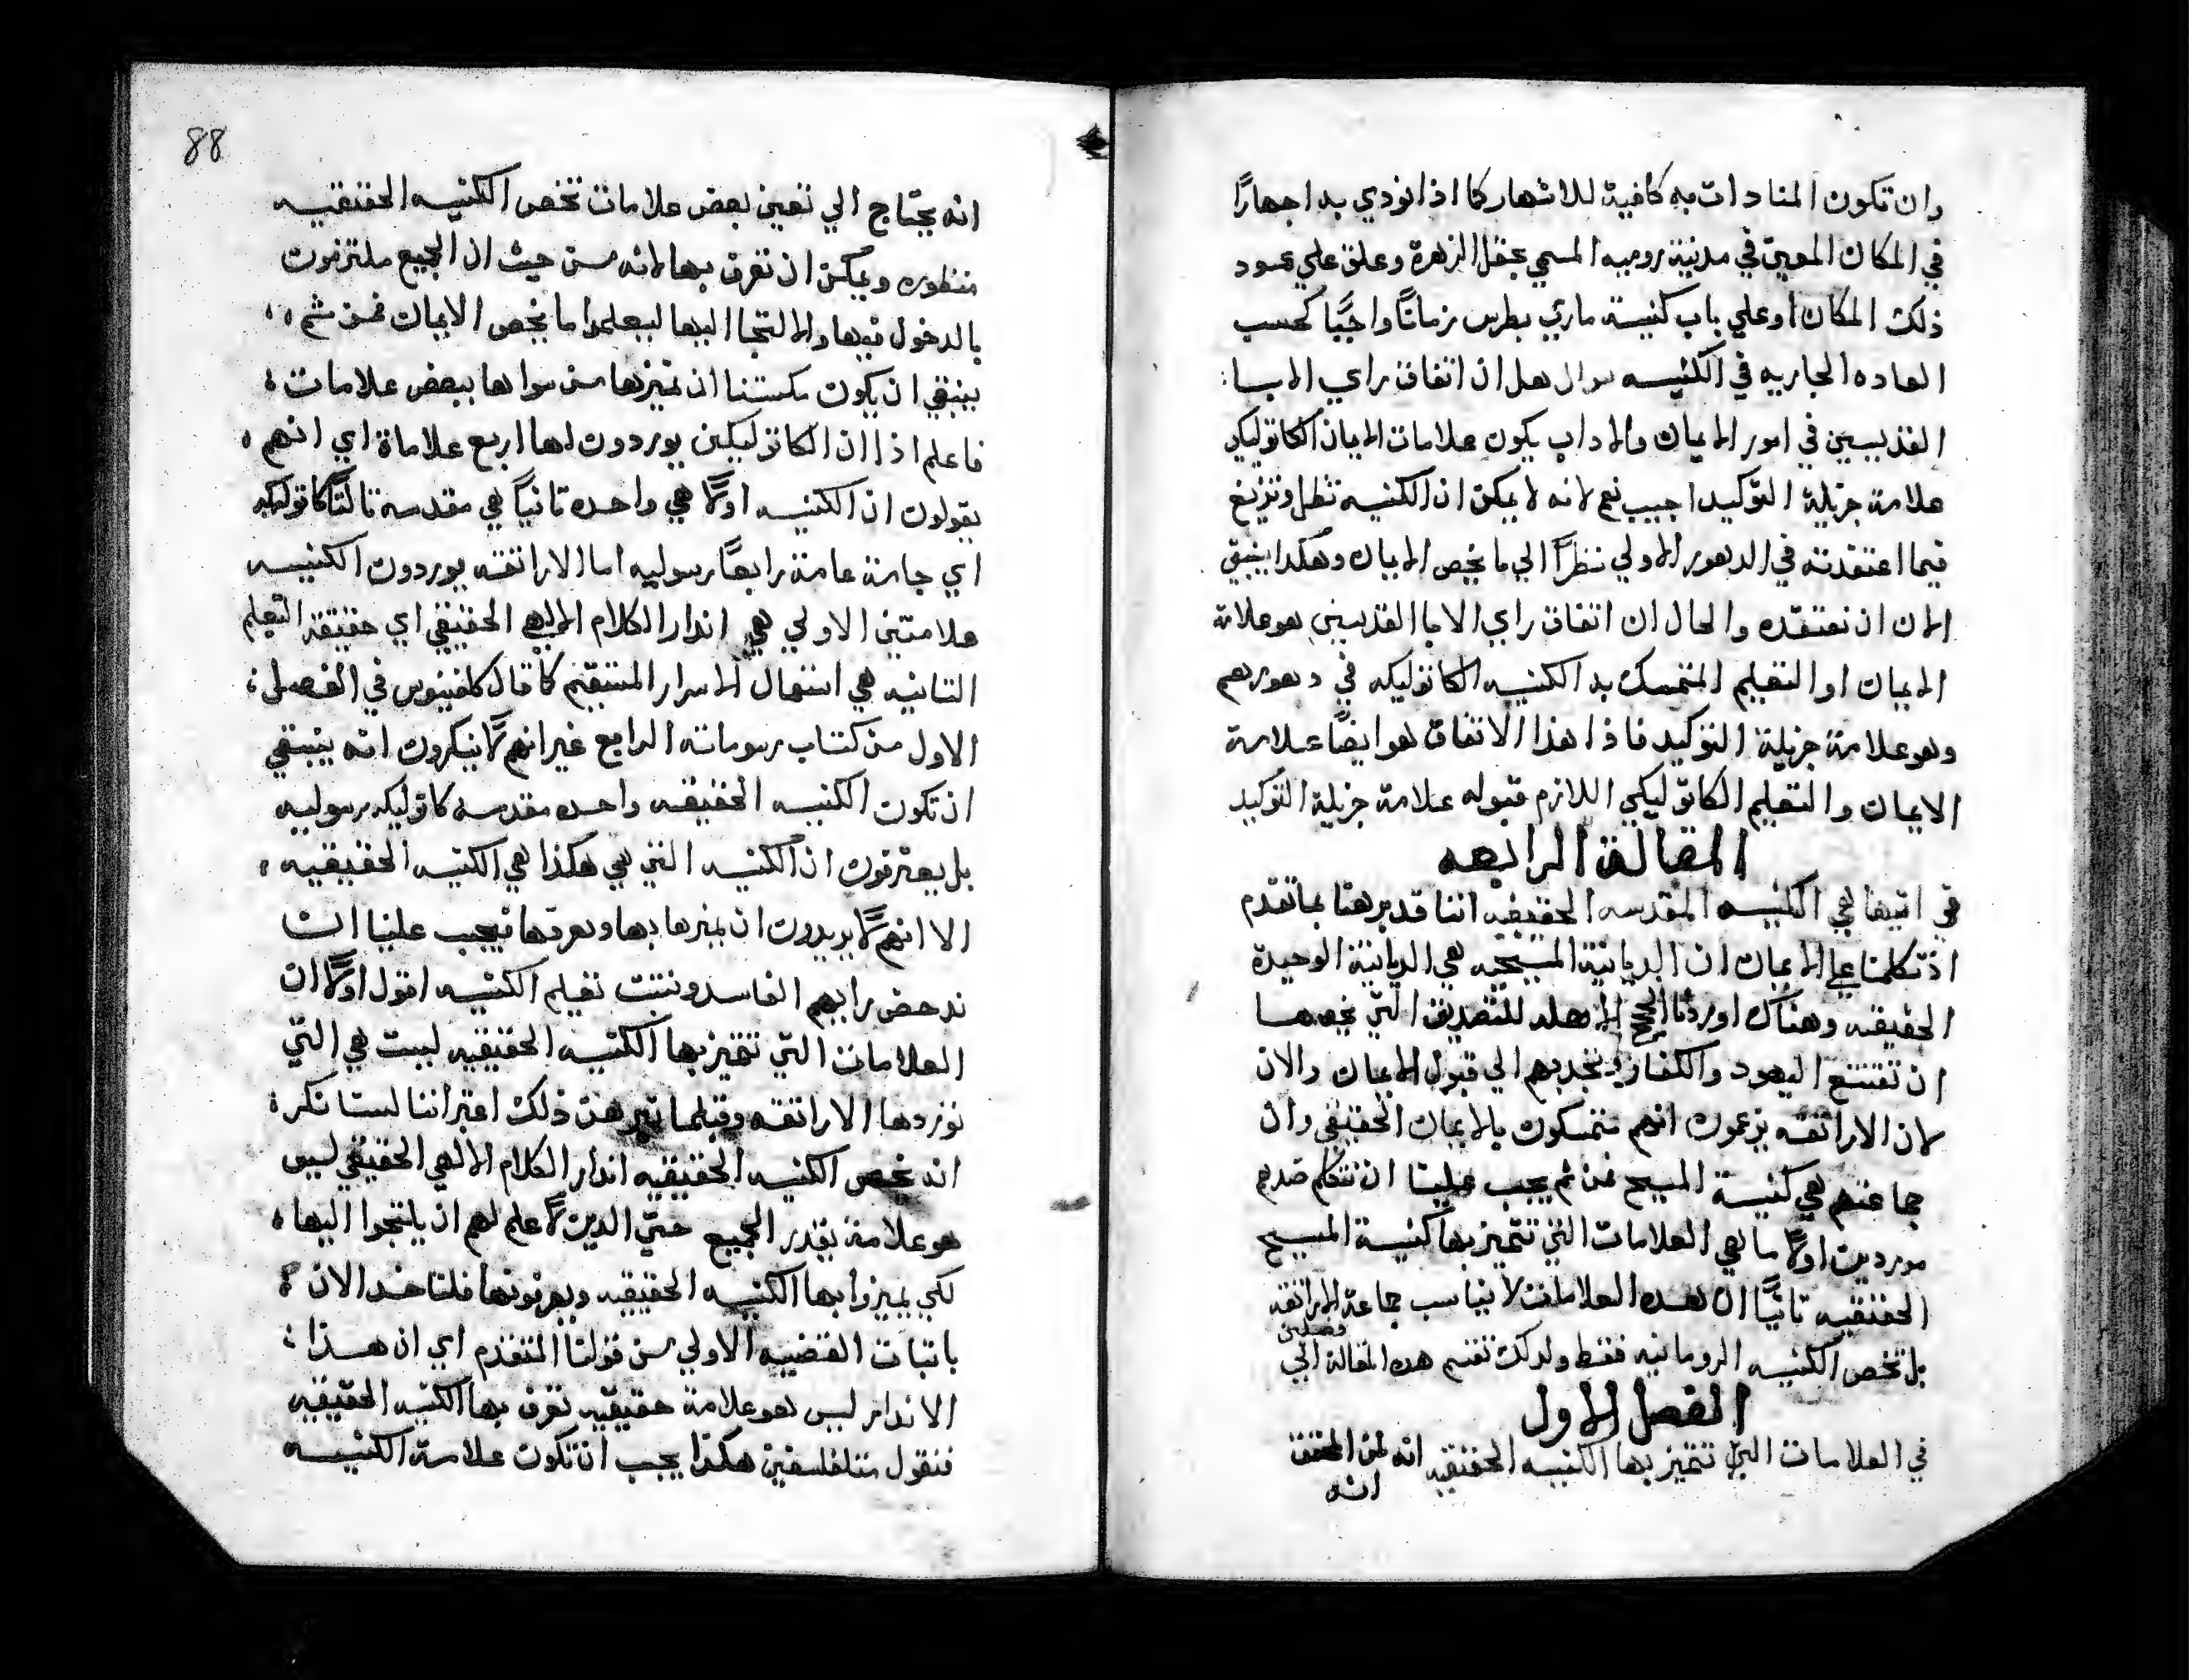 وان تكون المنادات به كافية للاشهار كما اذا نودي به اجهارًا
في المكان المعين في مدنية روميه المسمي بحقل الزهرة وعلق علي عمود
ذلك المكان او علي باب كنيسة ماري بطرس زمانًا واجبًا كحسب
العاده الجاريه في الكنيسه سوال هل ان اتفاق راي الابا:
القديسين في امور الايمان والاداب يكون علامات الايمان الكاتوليكي
علامة جزيلة التوكيد اجيب نعم لانه لا يمكن ان الكنيسه تظل وتزيغ
فيما اعتقدته في الدهور الاولي نظرًا الي ما يخص الايمان وهكدا ينبغي
الان ان نعتقده والحال ان اتفاق راي الابا القديسين هو علامة
الايمان او التعليم المتمسك به الكنيسه الكاتوليكه في دهورهم
وهو علامة جزيلة التوكيد فاذا هذا الاتفاق هو ايضًا علامة
الايمان والتعليم الكاتوليكي اللازم قبوله علامة جزيلة التوكيد
المقالة الرابعه
في ايتها هي الكنيسه المقدسه الحقيقيه اننا قد برهنا بما تقدم
اذ تكلمنا علي الايمان ان الديانية المسيحيه هي الديانية الوحيدة
الحقيقيه وهناك اوردنا الحجج الاهله للتصديق التي يمكنها
ان تقنع اليهود والكفار وتجدبهم الي قبول الايمان والان
لان الاراتقه يزعمون انهم متمسكون بالايمان الحقيقي وان
جماعتهم هي كنيسة المسيح فمن ثم يجب علينا ان نتكلم ضدهم
موردين اولًا ما هي العلامات التي تتميز بها كنيسة المسيح
الحقيقيه تانيًا ان هده العلامات لا يناسب جماعة الاراتقه
بل تخص الكنيسه الرومانيه فقط ولدلك تقسم هده المقالة الي فصلين
الفصل الاول
في العلامات التي تتميز بها الكنيسه الحقيقيه انه لمن المحقق
انه
88
انه يحتاج الي تعين بعض علامات تخص الكنيسه الحقيقيه
منظوره ويمكن ان تعرف بها لانه من حيث ان الجميع ملتزمون
بالدخول فيها والالتجا اليها ليعلموا ما يخص الايمان فمن ثم ،،
ينبغي ان يكون مكستنا ان نميزها من سواها ببعض علامات ؛
فاعلم اذا ان الكاتوليكين يوردون لها اربع علاماة اي انهم ،
يقولون ان الكنيسه اولًا هي واحده تانيًا هي مقدسه تالتًا كاتوليكه
اي جامة عامة رابعًا رسوليه اما الاراتقه يوردون الكنيسه
علامتين الاولي هي اندار الكلام الالهي الحقيقي اي حقيقة التعليم
التانيه هي استعمال الاسرار المستقيم كما قال كلفينوس في الفصل ؛
الاول من كتاب رسوماته الرابع غير انهم لا ينكرون انه ينبغي
ان تكون الكنيسه الحقيقه واحده مقدسه كاتوليكه رسوليه
بل يعترفون ان الكنيسه التي هي هكذا هي الكنيسه الحقيقيه ،
الا انهم لا يريدون ان نميزها بها ونعرفها فيجب علينا ان
ندحض رايهم الفاسد ونتبت تعليم الكنيسه اقول اولًا ان
العلامات التي تتميز بها الكنيسه الحقيقيه ليست هي التي
توردها الاراتقه وقبلما نبرهن ذلك اعتبر اننا لسنا ننكر ؛
انه يخص الكنيسه الحقيقيه اندار الكلام الالهي الحقيقي ليس
هو علامة يقدر الجميع حتي الدين لا علم لهم ان يلتجوا اليها ،
لكي يميزوا بها الكنيسه الحقيقيه ويعرفونها فلناخد الان ؛
باتبات القضيه الاولي من قولنا المتقدم اي ان هذا ؛
الاندار ليس هو علامة حقيقيه تعرف بها الكنيسه الحقيقيه
فنقول متفلسفين هكذا يجب ان تكون علامة الكنيسه